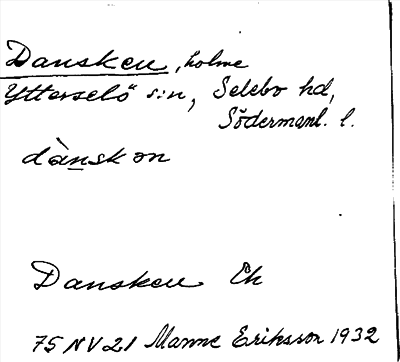 Dansken, holme
Ytterselö sn, Selebo hd,
Södermanl. l.
dànskon
Dansken Ek
75 NV 21 Manne Eriksson 1932